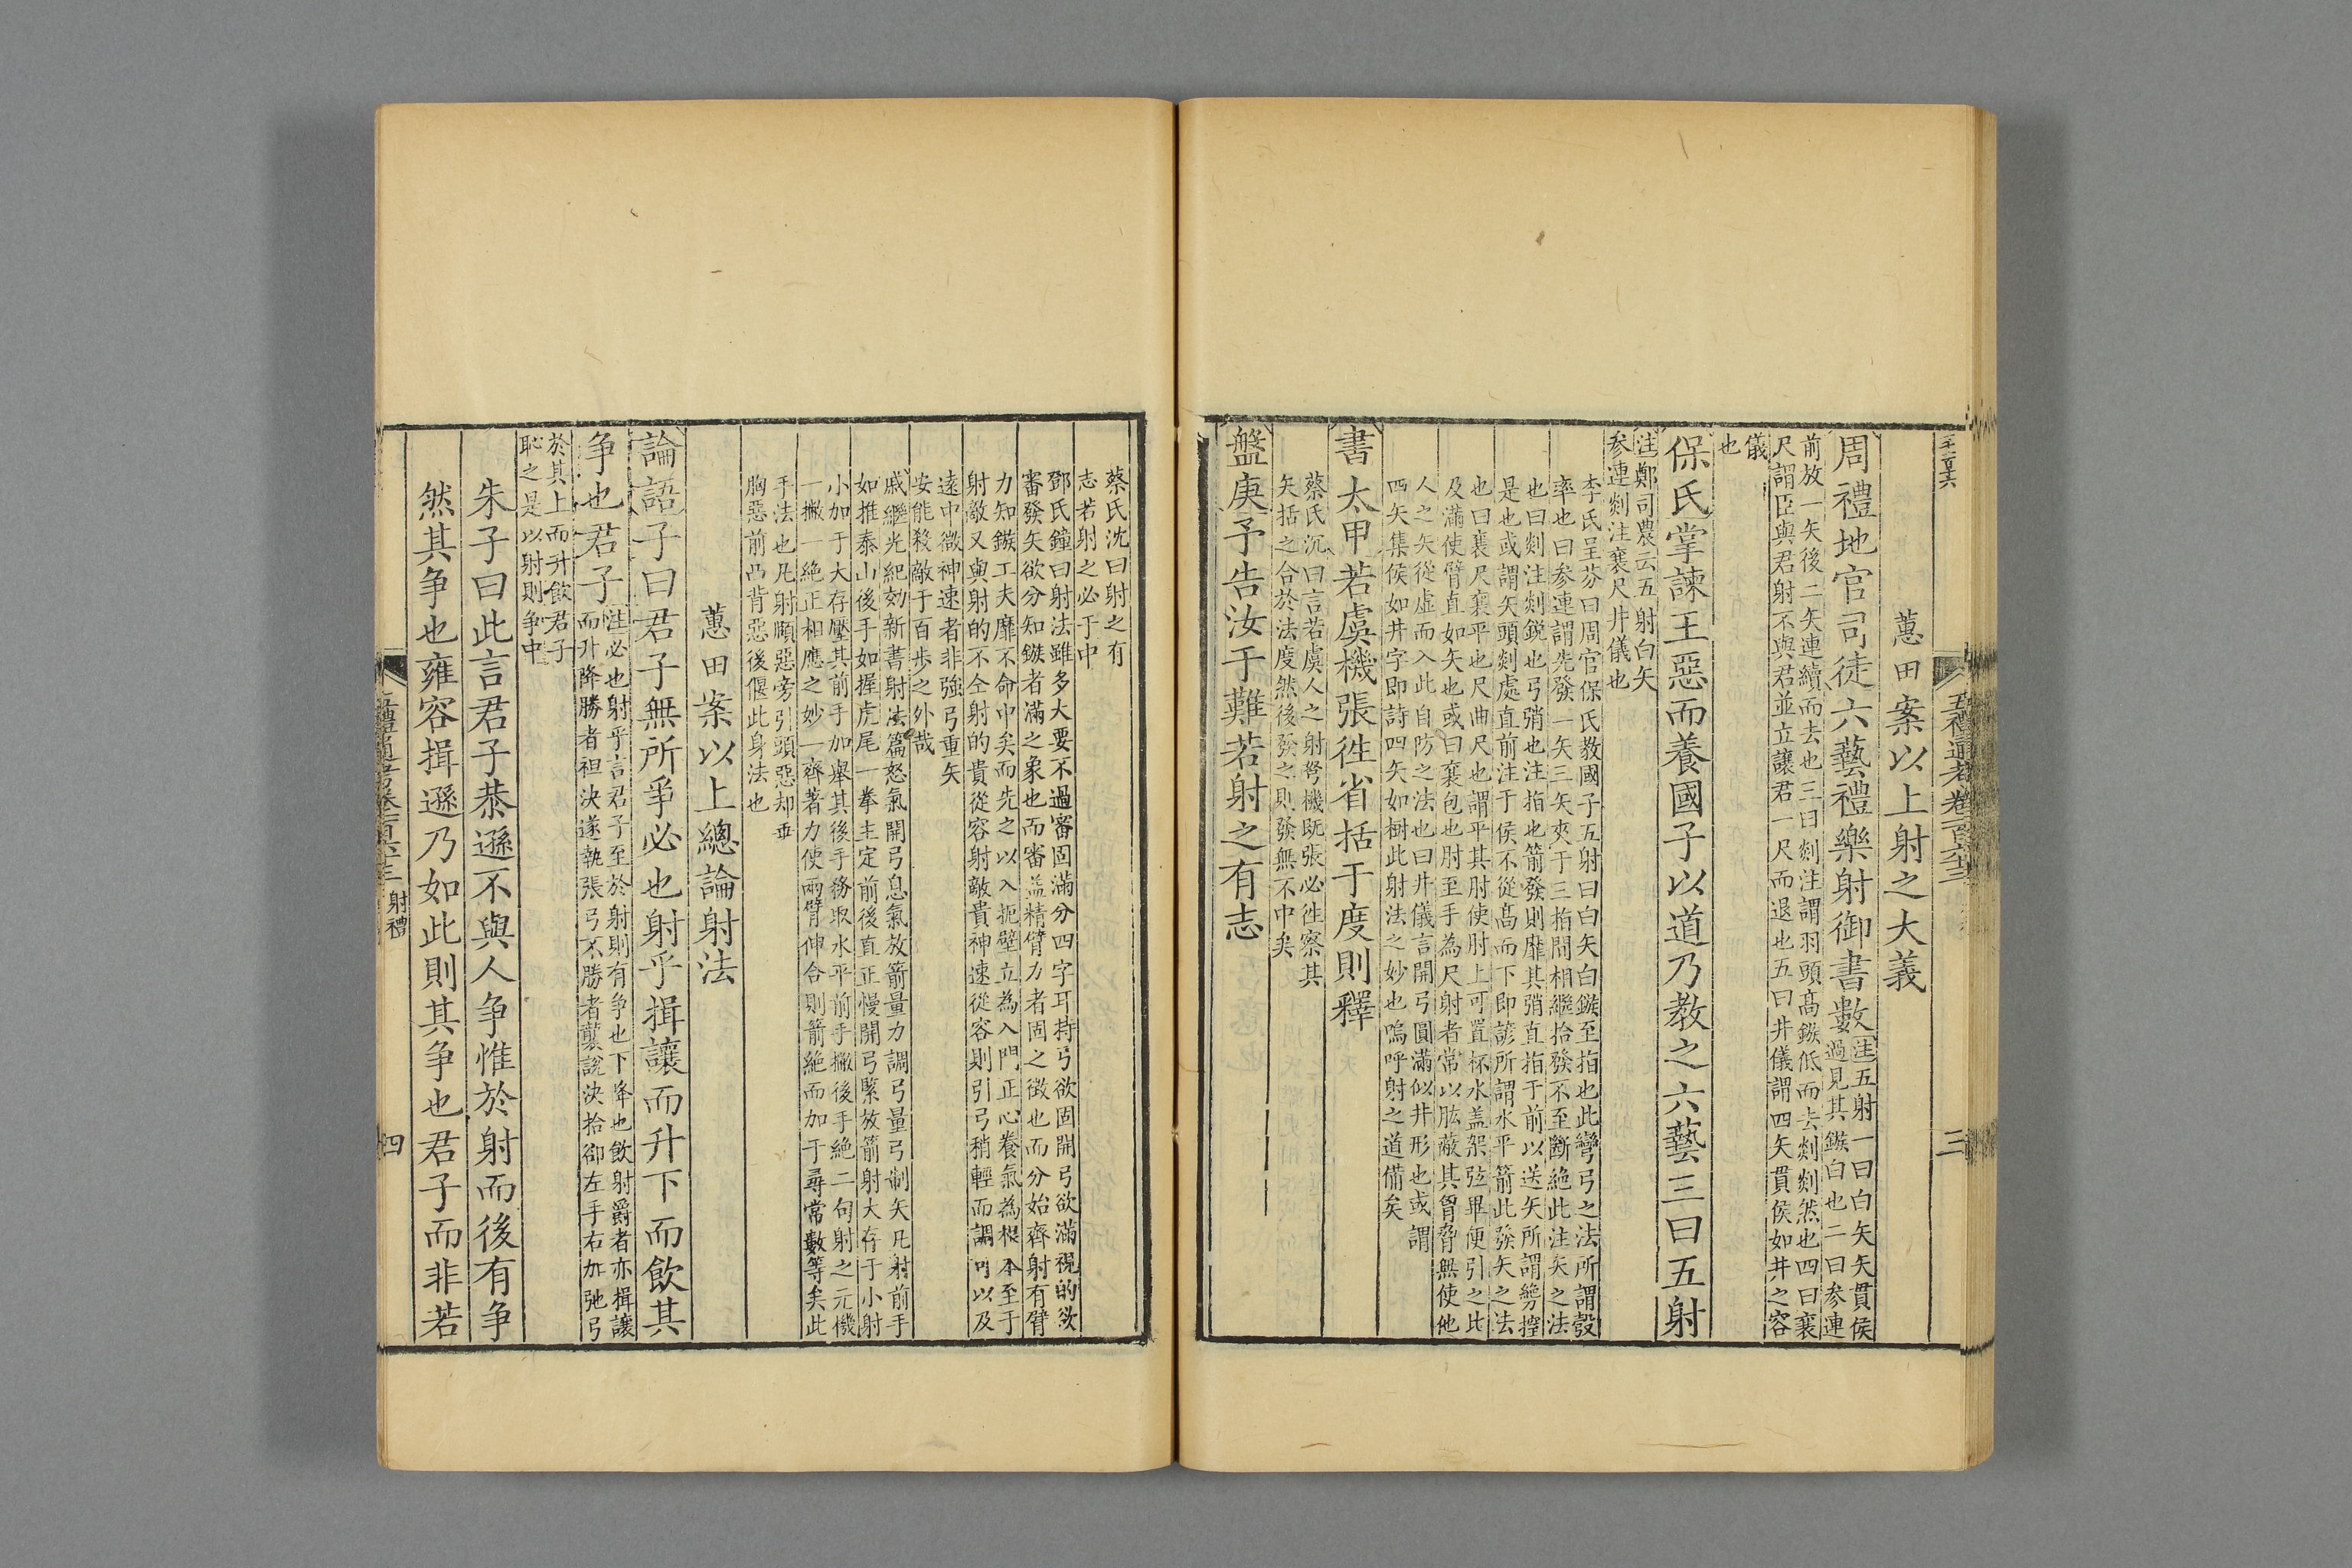 五禮通考卷一百六十三
三
蕙田案以上射之大義
周禮地官司徒六藝禮樂射御書數注五射一曰白矢矢貫侯
過見其鏃白也二曰參連
前放一矢後二矢連續而去也三曰剡注謂羽頭高鏃低而去剡剡然也四曰襄
尺謂臣與君射不與君並立讓君一尺而退也五曰井儀謂四矢貫侯如井之容
儀
也
保氏掌諫王惡而養國子以道乃教之六藝三曰五射
注鄭司農云五射白矢
參連剡注襄尺井儀也
李氏呈芬曰周官保氏教國子五射曰白矢白鏃至指也此彎弓之法所謂彀
率也曰參連謂先發一矢三矢夾于三指間相繼拾發不至斷絶此注矢之法
也曰剡注剡銳也弓弰也注指也箭發則靡其弰直指于前以送矢所謂㔟控
是也或謂矢頭剡處直前注于侯不從高而下即諺所謂水平箭此發矢之法
也曰襄尺襄平也尺曲尺也謂平其肘使肘上可置杯水蓋架弦畢便引之比
及滿使臂直如矢也或曰襄包也肘至手為尺射者常以肱蔽其胷脅無使他
人之矢從虛而入此自防之法也曰井儀言開弓圓滿似井形也或謂
四矢集侯如井字即詩四矢如樹此射法之妙也嗚呼射之道備矣
書太甲若虞機張徃省括于度則釋
蔡氏沉曰言若虞人之射弩機旣張必徃察其
矢括之合於法度然後發之則發無不中矣
盤庚予告汝于難若射之有志
蔡氏沈曰射之有
志若射之必于中
鄧氏鐘曰射法雖多大要不過審固滿分四字耳持弓欲固開弓欲滿視的欲
審發矢欲分知鏃者滿之象也而審益精臂力者固之徴也而分始齊射有臂
力知鏃工夫靡不命中矣而先之以入扼壁立為入門正心養氣為根本至于
射敵又與射的不仝射的貴從容射敵貴神速從容則引弓稍輕而調可以及
遠中微神速者非強弓重矢
安能殺敵于百步之外哉
戚繼光紀効新書射法篇怒氣開弓息氣放箭量力調弓量弓制矢凡射前手
如推泰山後手如握虎尾一拳主定前後直正慢開弓緊放箭射大存于小射
小加于大存壓其前手加舉其後手務取水平前手撇後手絶二句射之元機
一撇一絶正相應之妙一齊著力使兩臂伸合則箭絶而加于尋常數等矣此
手法也凡射頤惡旁引頭惡却垂
胸惡前凸背惡後偃此身法也
蕙田案以上總論射法
論語子曰君子無所爭必也射乎揖讓而升下而飲其
爭也君子注必也射乎言君子至於射則有爭也下降也飲射爵者亦揖讓
而升降勝者袒決遂執張弓不勝者襲說決拾卻左手右加弛弓
於其上而升飲君子
恥之是以射則爭中
朱子曰此言君子恭遜不與人爭惟於射而後有爭
然其爭也雍容揖遜乃如此則其爭也君子而非若
五禮通考卷一百六十三 射禮
四